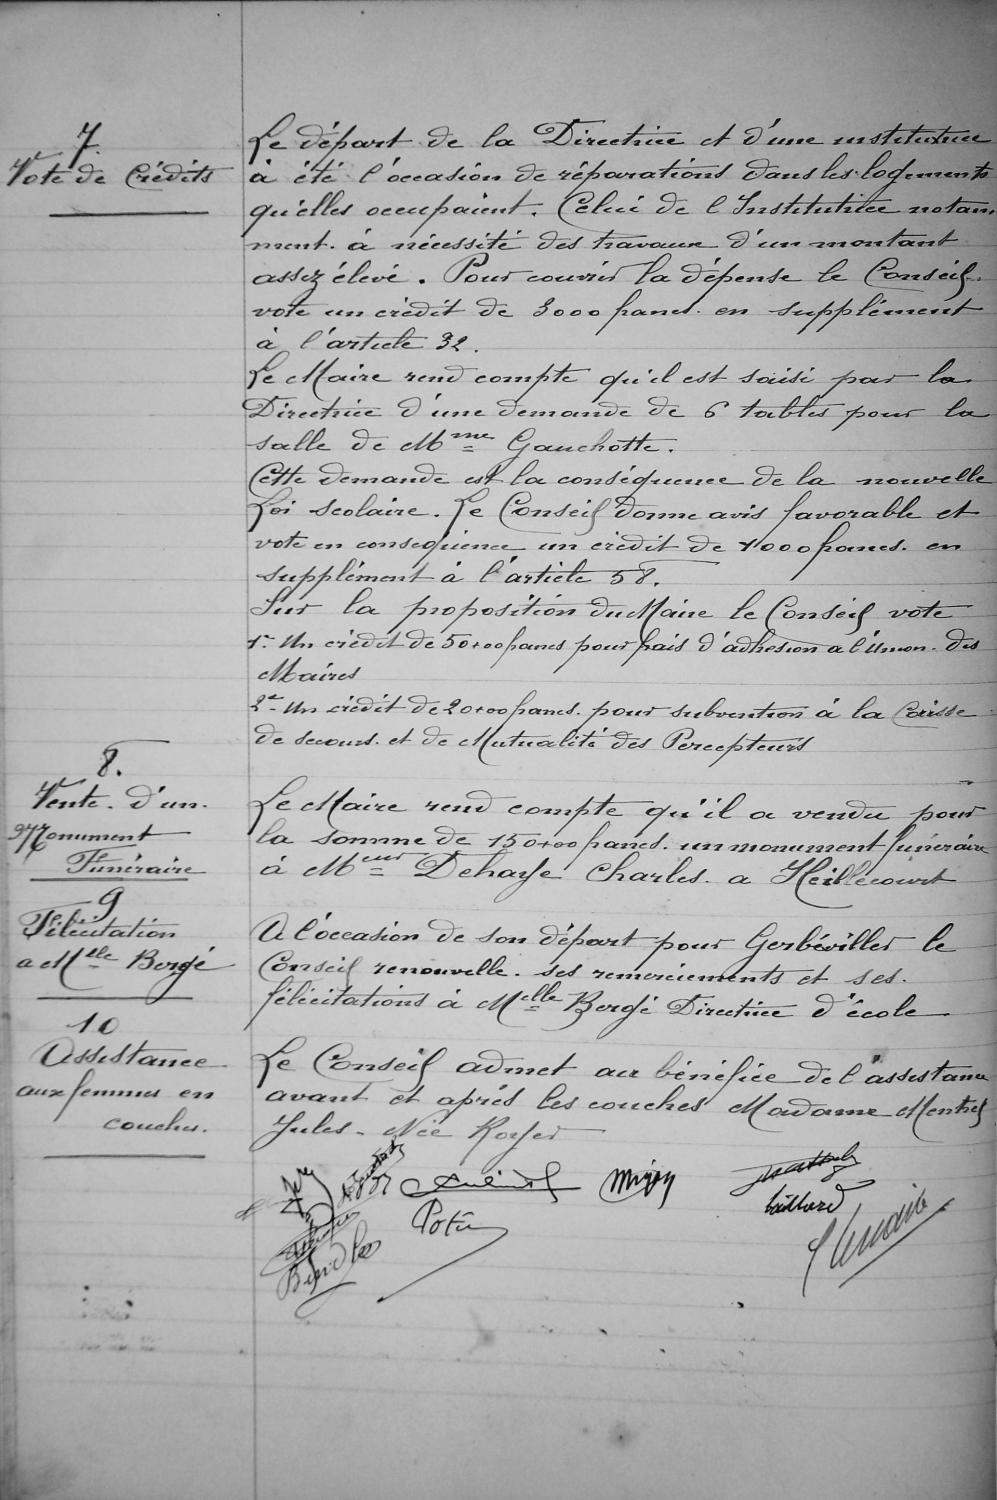 7
Vote de Crédits
Le départ de la Directrice et d'une institutrice
à été l'occasion de réparations dans les logements
qu'elles occupaient. Celui de l'Institutrice notam
ment. à nécessité des travaux d'un montant
assez élevé. Pour couvrir la dépense le Conseil.
vote un crédit de 3000 francs. en supplément
à l'article 32.
Le Maire rend compte qu'il est saisi par la
Directrice d'une demande de 6 tables pour la
salle de Mme Gauchotte.
Cette demande est la conséquence de la nouvelle
Loi scolaire. Le Conseil donne avis favorable et
vote en conséquence un crédit de 1000 francs. en
supplément à l'article 58.
Sur la proposition du Maire le Conseil vote
1º Un crédit de 50+00 francs pour frais d'adhésion a l'Union des
Maires
2º Un crédit de 20+00 francs. pour subvention à la Caisse
de secours. et de Mutualité des Percepteurs
8.
Vente. d'un.
Monument
Funéraire
Le Maire rend compte qu'il a vendu pour
la somme de 150+00 francs. un monument funéraire
à Meur Dehaye Charles. a Heillecourt
9
Félicitation
a Melle Bergé
A l'occasion de son départ pour Gerbéviller le
Conseil renouvelle. ses remerciements et ses.
félicitations à Melle Bergé Directrice d'école
10
Assistance
aux femmes en
couches.
Le Conseil admet au bénéfice de l'assistance
avant et après les couches Madame Mentrel
Jules. Née Royer
Poté